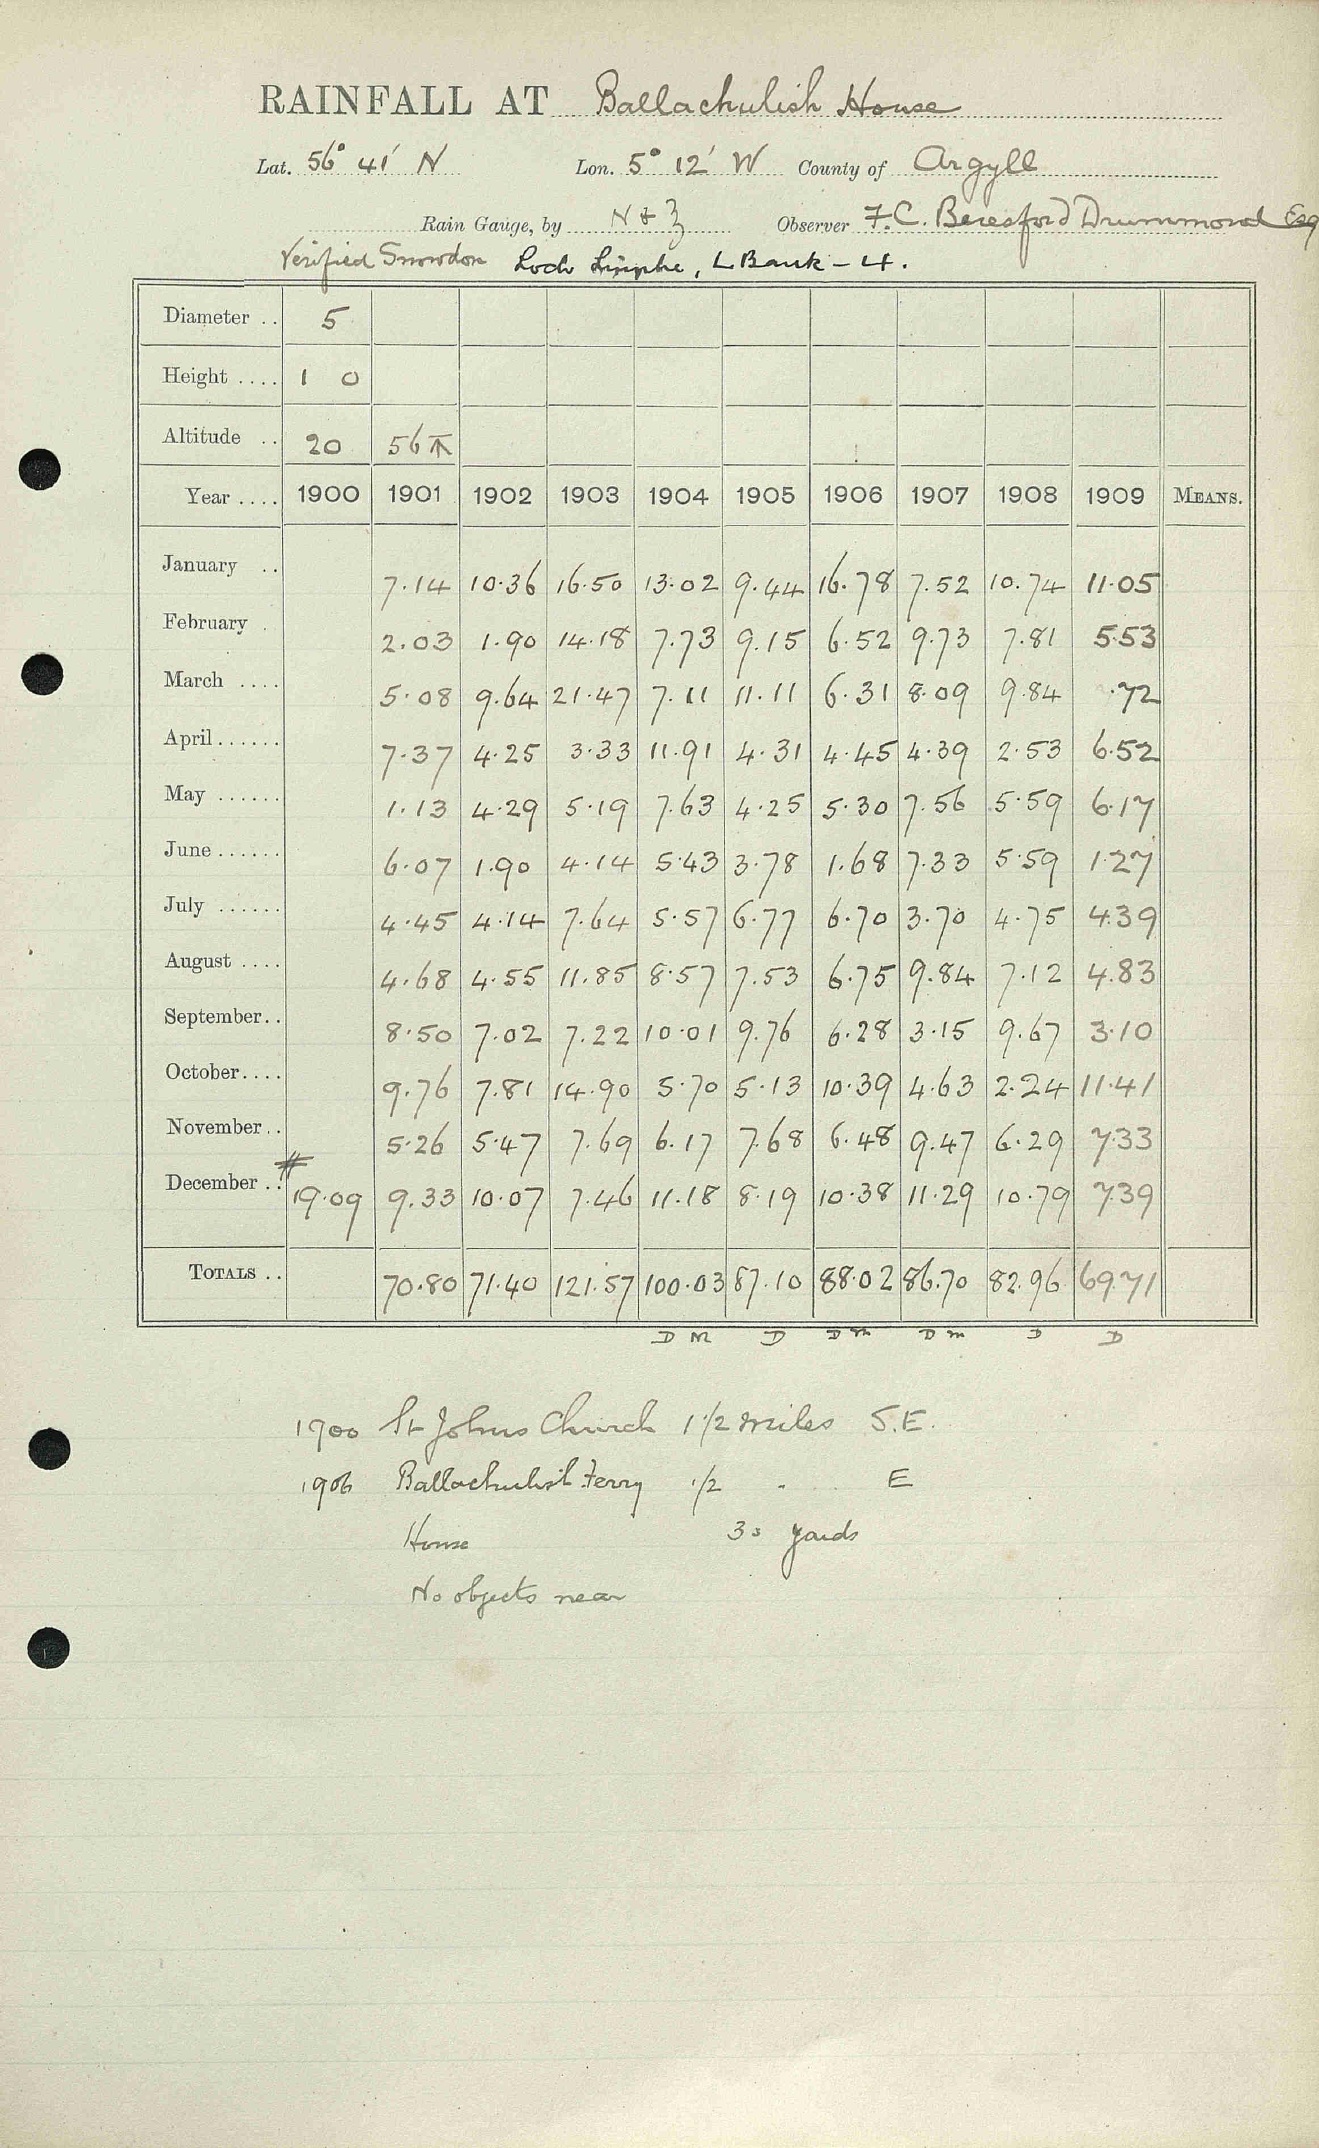 RAINFALL AT Ballachulish House
Lat. 56° 41' N Lon. 5° 12' W County of Argyll
Rain Gauge, by N & Z Observer F.C. Beresford Drummond Esq
Verified Snowdon Loch Linnhe, L Bank - 4.
Diameter .. 5
Height .... 1 0
Altitude .. 20 56
Year .... 1900 1901 1902 1903 1904 1905 1906 1907 1908 1909 MEANS.
January .. 7.14 10.36 16.50 13.02 9.44 16.78 7.52 10.74 11.05
February . 2.03 1.90 14.18 7.73 9.15 6.52 9.73 7.81 5.53
March .... 5.08 9.64 21.47 7.11 11.11 6.31 8.09 9.84 .72
April...... 7.37 4.25 3.33 11.91 4.31 4.45 4.39 2.53 6.52
May ...... 1.13 4.29 5.19 7.63 4.25 5.30 7.56 5.59 6.17
June...... 6.07 1.90 4.14 5.43 3.78 1.68 7.33 5.59 1.27
July ...... 4.45 4.14 7.64 5.57 6.77 6.70 3.70 4.75 4.39
August .... 4.68 4.55 11.85 8.57 7.53 6.75 9.84 7.12 4.83
September.. 8.50 7.02 7.22 10.01 9.76 6.28 3.15 9.67 3.10
October.... 9.76 7.81 14.90 5.70 5.13 10.39 4.63 2.24 11.41
November.. 5.26 5.47 7.69 6.17 7.68 6.48 9.47 6.29 7.33
December .. # 19.09 9.33 10.07 7.46 11.18 8.19 10.38 11.29 10.79 7.39
TOTALS .. 70.80 71.40 121.57 100.03 87.10 88.02 86.70 82.96 69.71
D M D D m D m D D
1900 St Johns Church 1 1/2 miles S.E.
1906 Ballachulish Ferry 1/2 " E
House 30 yards
No objects near